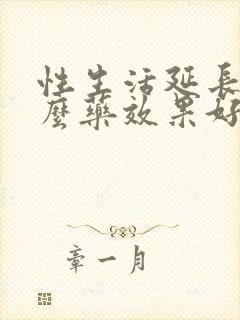 性生活延長
麼藥效果好
章一月